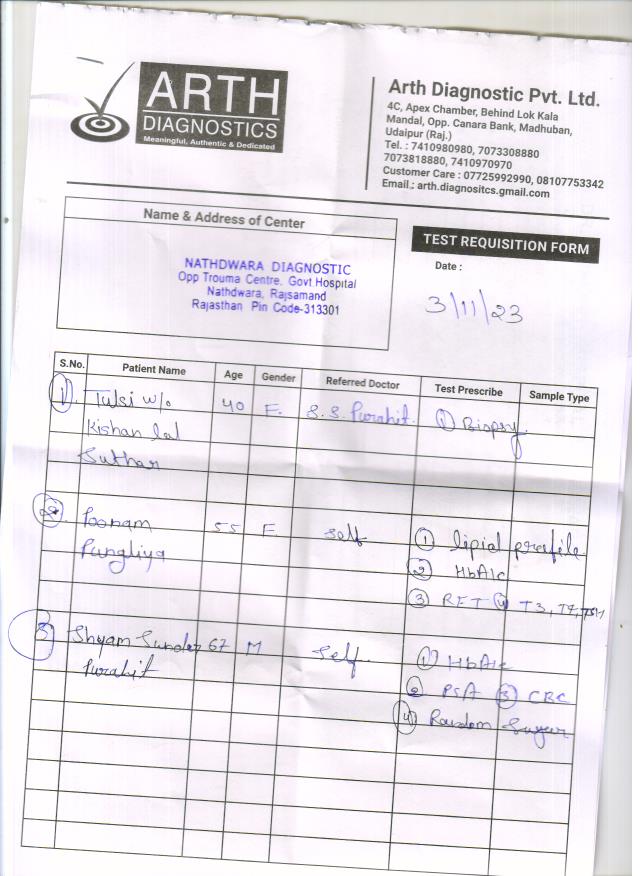 ARTH
DIAGNOSTICS
Meaningful, Authentic & Dedicated
Arth Diagnostic Pvt. Ltd.
4C, Apex Chamber, Behind Lok Kala
Mandal, Opp. Canara Bank, Madhuban,
Udaipur (Raj.)
Tel. : 7410980980, 7073308880
7073818880, 7410970970
Customer Care : 07725992990, 08107753342
Email.: arth.diagnositcs.gmail.com
Name & Address of Center
NATHDWARA DIAGNOSTIC
Opp Trouma Centre, Govt Hospital
Nathdwara, Rajsamand
Rajasthan Pin Code-313301
TEST REQUISITION FORM
Date :
3/11/23
S.No. Patient Name Age Gender Referred Doctor Test Prescribe Sample Type
1. Tulsi w/o 40 F. S. S. Purohit. 1 Biopsy
Kishan lal
Suthar
2. Poonam 55 F. self 1 lipid profile
Pungliya 2 HbA1c
3 RFT 4 T3, T4, TSH
3 Shyam Sunder 67 M self. 1 HbA1c
Purohit 2 PSA 3 CBC
4 Random Sugar